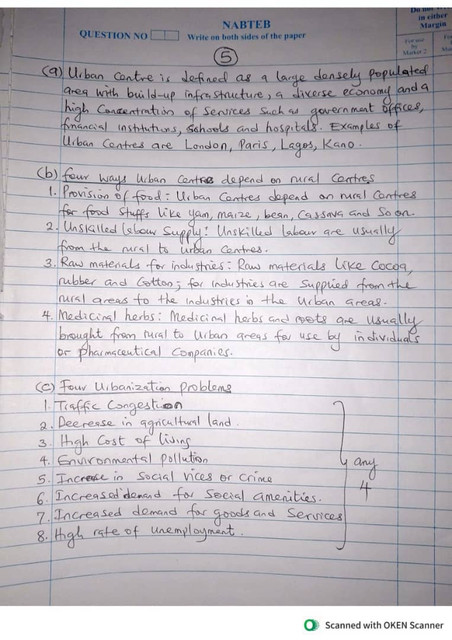 NABTEB
QUESTION NO
Write on both sides of the paper
in either
Margin
5
(a) Urban Centre is defined as a large densely populated
area with build-up infrastructure, a diverse economy and a
high Concentration of Services such as government offices,
financial institutions, Schools and hospitals. Examples of
Urban Centres are London, Paris, Lagos, Kano.
(b) four ways Urban Centres depend on rural Centres
1. Provision of food: Urban Centres depend on rural Centres
for food stuffs like yam, maize, bean, Cassava and So on.
2. Unskilled Labour Supply: Unskilled labour are usually
from the rural to Urban Centres.
3. Raw materials for industries: Raw materials like Cocoa,
rubber and Cotton; for industries are Supplied from the
rural areas to the industries in the Urban areas.
4. Medicinal herbs: Medicinal herbs and roots are usually
brought from rural to Urban areas for use by individuals
or Pharmaceutical Companies.
(c) Four Urbanization problems
1. Traffic Congestion
2. Decrease in agricultural land.
3. High Cost of living
4. Environmental pollution
5. Increase in Social vices or crime
6. Increased demand for Social amenities.
7. Increased demand for goods and Services
8. High rate of unemployment.
any
4
Scanned with OKEN Scanner